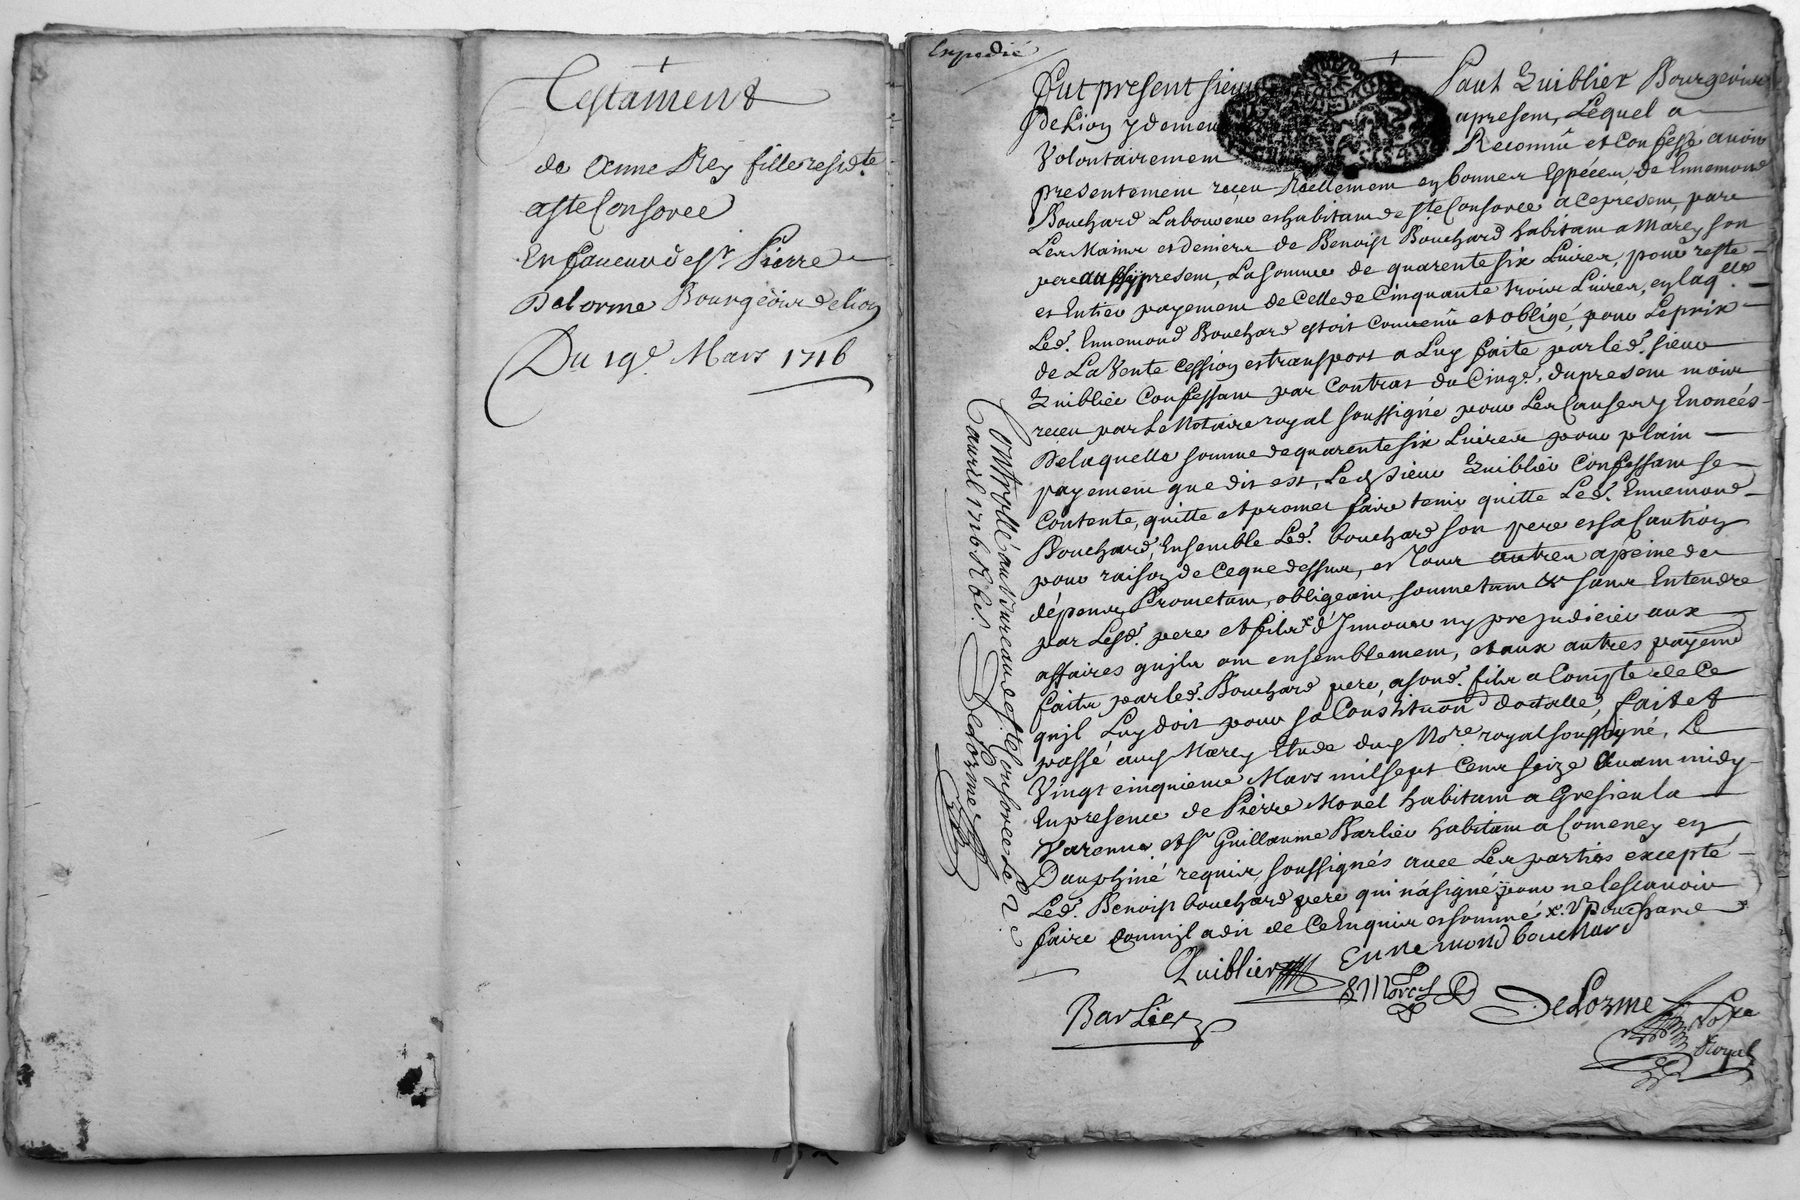 Testament
de Anne Rey fille resid.te
a ste Consorce
En faueur de sr. Pierre
Delorme Bourgeois de lion
Du 19e. Mars 1716
Expedié
Fut present sieur Paul Quiblier Bourgeois
de Lion y demeu apresent, Lequel a
Volontairement Reconnû et Confessé auoir
presentement reçeu Réellement en bonnes Espéces, de Ennemond
Bouchard Laboureur et habitant de ste Consorce a ce present, par
Les Mains et deniers de Benoist Bouchard habitant a Marcy son
pere aussy present, La somme de quarente six Liures, pour reste
et Entier payement de Celle de Cinquante trois Liures, en laq.lle
Led. Ennemond Bouchard estoit Conuenû et obligé, pour Le prix
de La Vente Cession et transport a Luy faite par led. sieur
Quiblier Confessant par Contrat du Cinqe. du present mois
reçeu par Le Notaire royal soussigné pour Les Causes y Enoncés
De laquelle somme de quarente six Liures pour plain
payement que dit est, Led sieur Quiblier Confessant se
Contente, quitte et promet faire tenir quitte Led. Ennemond
Bouchard, Ensemble Led. bouchard son pere et sa Caution
pour raison de Ce que dessus, et Tous autres a peine des
dépens, Prometant, obligeant, soumetant &c sans Entendre
par Lesd. pere et fils d'Innouer ny prejudicier aux
affaires qu'ils ont ensemblement, et aux autres payemt
faits par led. Bouchard pere, a sond. fils a Compte de Ce
qu'il Luy doit pour sa Constituon dotalle, fait et
passé aud Marcy Etude dud Nore. royal soussigné, Le
Vingt cinquieme Mars mil sept Cens seize Auant midy
En presence de Pierre Morel habitant a Gresieu la
Varenne et sr Guillaume Barlier habitant a Comeney en
Dauphiné requis, soussignés auec Les parties excepté
Led. Benoist bouchard pere qui n'a signé pour ne le scauoir
faire Comme il a dit de Ce Enquis et sommé
Quiblier Ennemond bouchard
Morel
Barlier DeLorme Nore
Royal
Controllé au Bureau de ste Consorce Le 2e
auril 1716 R 6 s. Delorme